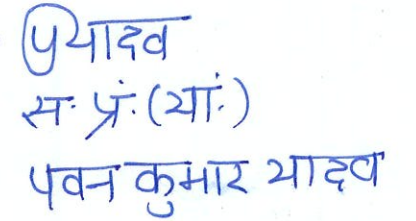 पुयादव
स. प्रं. (यां.)
पवन कुमार यादव